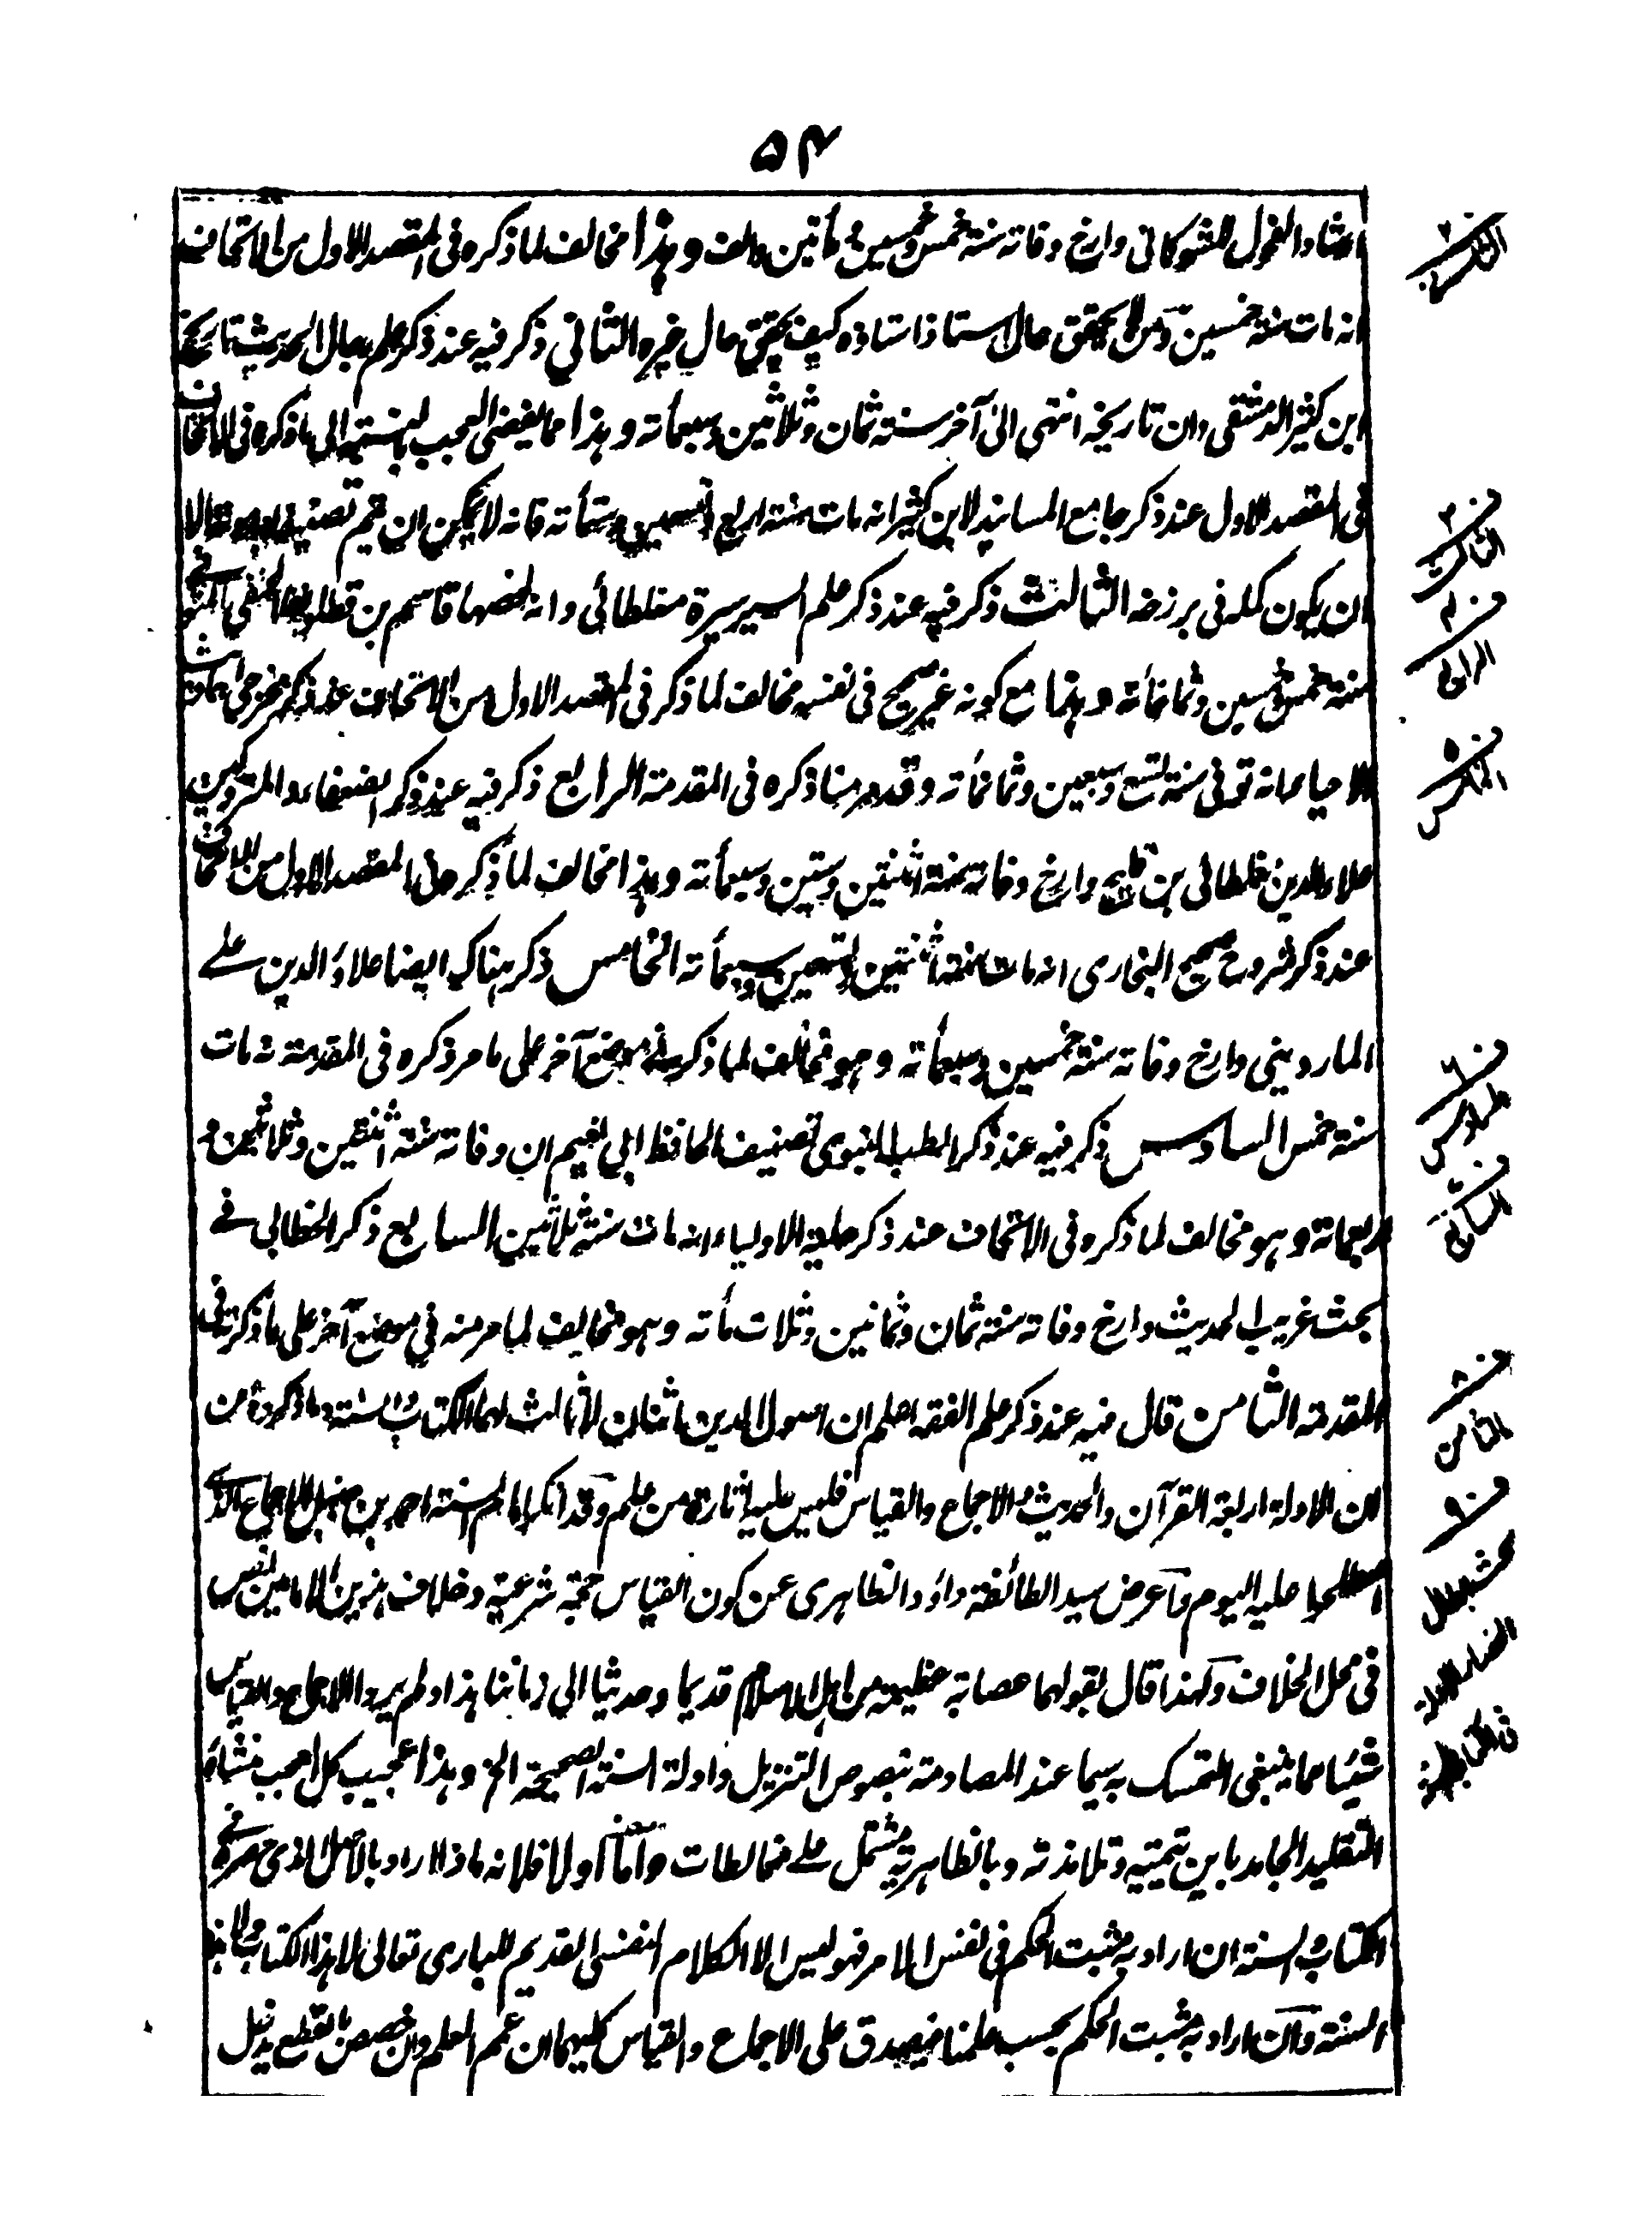 ۵۴
ارشاد الفحول للشوكانى وارخ وفاته سنة خمس وخمسين بعد مأتين والف وهذا مخالف لما ذكره فى المقصد الاول من الاتحاف
انه مات سنة خمسين ومن لم يحقق حال استاذ استاذه كيف يحقق حال غيره الثانى ذكر فيه عند ذكر علم رجال الحديث تاريخ
ابن كثير الدمشقى وان تاريخه انتهى الى آخر سنة ثمان وثلاثين وسبعمأته وهذا مما يفضى العجب بالنسبة الى ما ذكره فى الاتحاف
فى المقصد الاول عند ذكر جامع المسانيد لابن كثير انه مات سنة اربع وتسعين وستمأته فانه لا يمكن ان يتم تصنيفه بعد موته الا
ان يكون كمله فى برزخه الثالث ذكر فيه عند ذكر علم السير سيرة مغلطائى وانه لخصها قاسم بن قطلوبغا الحنفى المتوفى
سنة خمس وخمسين وثمانمأته وهذا مع كونه غير صحيح فى نفسه مخالف لما ذكر فى المقصد الاول من الاتحاف عند ذكر مخرجى احاديث
الاحياء انه توفى سنة تسع وسبعين وثمانمأته وقد مر منا ذكره فى المقدمة الرابع ذكر فيه عند ذكر الضعفاء والمتروكين
علاء الدين مغلطائى بن قليج وارخ وفاته سنة اثنتين وستين وسبعمأته وهذا مخالف لما ذكر فى المقصد الاول من الاتحاف
عند ذكر شروح صحيح البخارى انه مات سنة اثنتين وتسعين وسبعمأته الخامس ذكر هناك ايضا علاؤ الدين على
الماردينى وارخ وفاته سنة خمسين وسبعمأته وهو مخالف لما ذكر فى موضع آخر على ما مر ذكره فى المقدمة انه مات
سنة خمس السادس ذكر فيه عند ذكر الطب النبوى تصنيف الحافظ ابى نعيم ان وفاته سنة اثنتين وثلاثين و
اربعمائة وهو مخالف لما ذكره فى الاتحاف عند ذكر حلية الاولياء انه مات سنة ثلاثين السابع ذكر الخطابى فى
بحث غريب الحديث وارخ وفاته سنة ثمان وثمانين وثلاث مأته وهو مخالف لما مر منه فى موضع آخر على ما ذكرته فى
المقدمة الثامن قال فيه عند ذكر علم الفقه اعلم ان اصول الدين اثنان لا ثالث لهما الكتاب والسنة وما ذكروه من
ان الادلة اربعة القرآن والحديث والاجماع والقياس فليس عليه اثارة من علم وقد انكر امام السنة احمد بن حنبل الاجماع الذى
اصطلحوا عليه اليوم واعرض سيد الطائفة داؤد الظاهرى عن كون القياس حجة شرعية وخلاف هذين الامامين نص
فى محل الخلاف ولهذا قال بقولهما عصابة عظيمة من اهل الاسلام قديما وحديثا الى زماننا هذا ولم يروا الاجماع والقياس
شيئا مما ينبغى التمسك به سيما عند المصادمة بنصوص التنزيل وادلة السنة الصحيحة الخ وهذا عجيب كل العجب منشأه
التقليد الجامد بابن تيمية وتلامذته وبالظاهرية مشتمل على مخالطات واما اولا فلانه ماذا اراد بالاصل الذى حصره فى
الكتاب والسنة ان اراد به مثبت الحكم فى نفس الامر فهو ليس الا الكلام النفسى القديم للبارى تعالى لا هذا الكتاب ولا هذه
السنة وان اراد به مثبت الحكم بحسب علمنا فيصدق على الاجماع والقياس كليهما ان عمم العلم وان خصص بالقطع يدخل
الثالث
الرابع
الخامس
السادس
السابع
الثامن